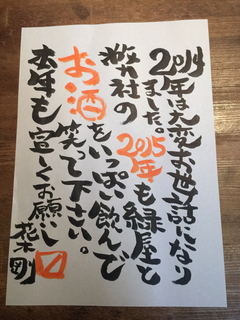 2014
年は大変お世話になり
ました。2015年も緑屋と
弊社の
お酒をいっぱい飲んで
笑って下さい。
本年も宜しくお願いし
剛